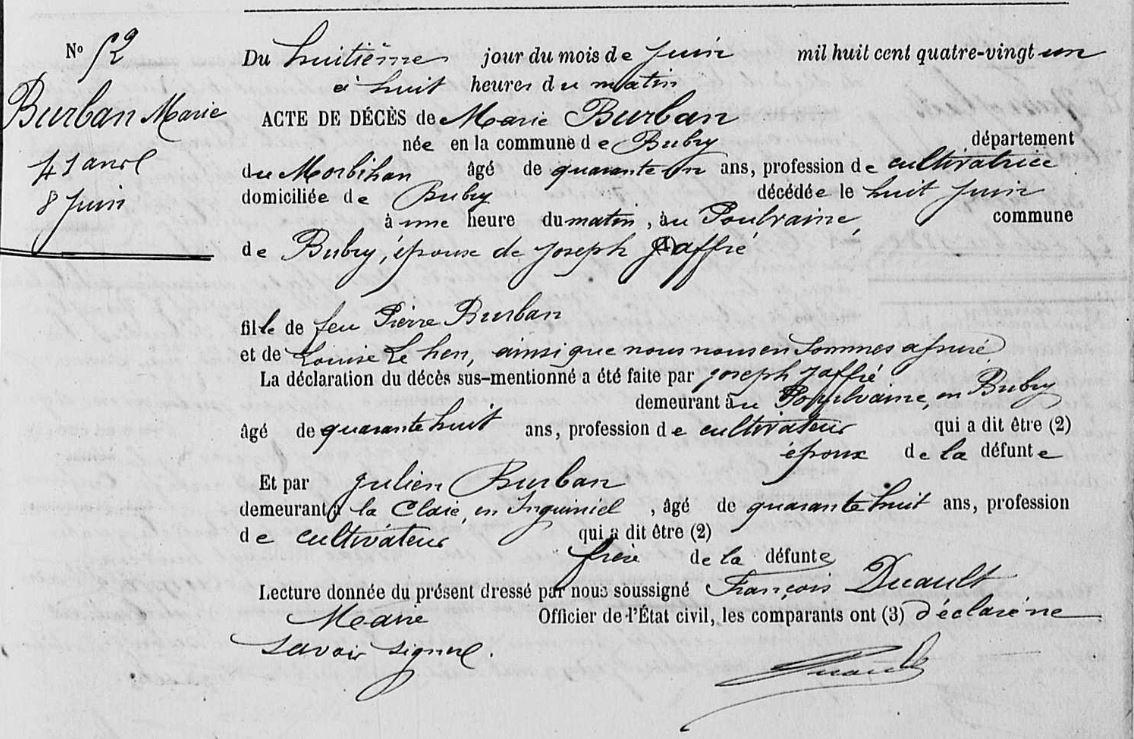 N° 52
Burban Marie
41 ans
8 Juin
Du huitième jour du mois de Juin mil huit cent quatre-vingt un
à huit heures du matin
ACTE DE DÉCÈS de Marie Burban
née en la commune de Bubry département
du Morbihan âgé de quarante un ans, profession de cultivatrice
domiciliée de Bubry décédée le huit Juin
à une heure du matin, au Poulvaine, commune
de Bubry, épouse de Joseph Jaffré
fille de feu Pierre Burban
et de Louise Le hen, ainsi que nous nous en sommes assuré
La déclaration du décès sus-mentionné a été faite par Joseph Jaffré
demeurant au Poulvaine, en Bubry
âgé de quarante huit ans, profession de cultivateur qui a dit être (2)
époux de la défunte
Et par Julien Burban
demeurant à la Claie en Inguiniel, âgé de quarante huit ans, profession
de cultivateur qui a dit être (2)
frère de la défunte
Lecture donnée du présent dressé par nous soussigné François Duault
Maire Officier de l'État civil, les comparants ont (3) déclaré ne
savoir signer.
Duault